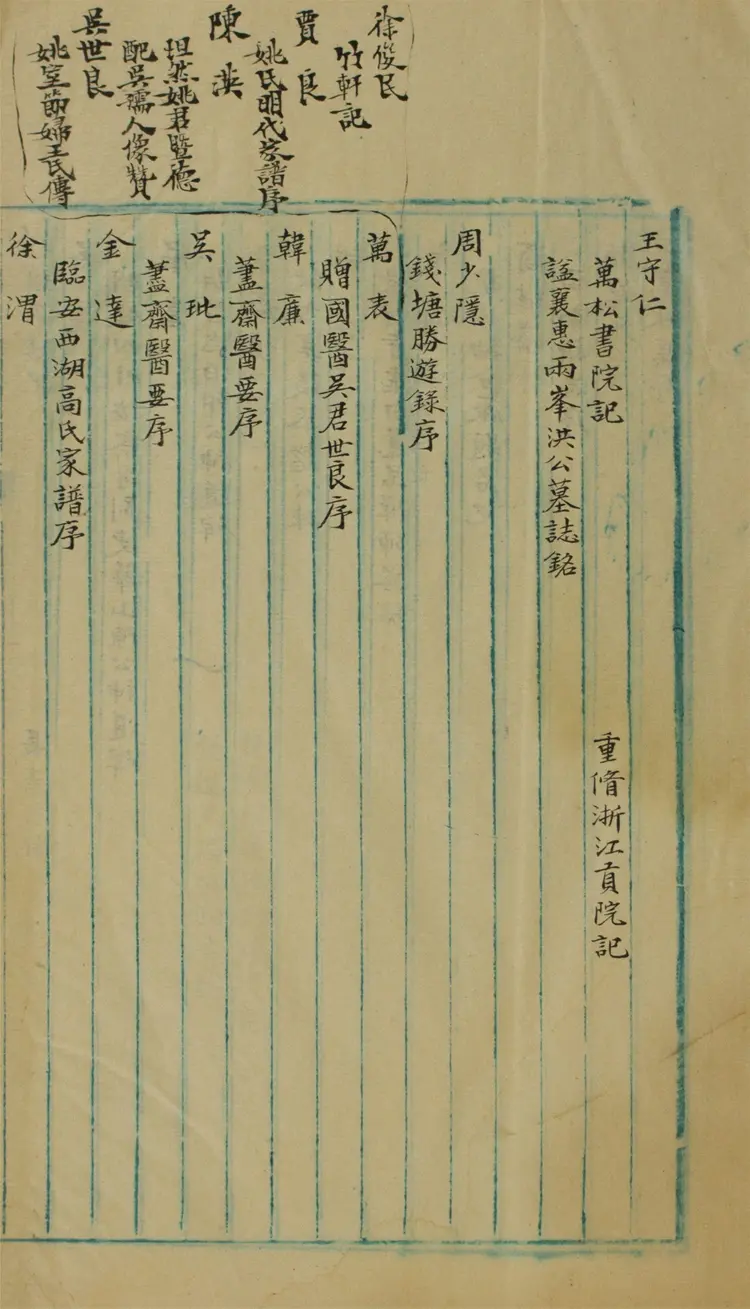 徐俊民
竹軒記
賈良
姚氏明代家譜序
陳漢
坦然姚君暨德
配吳孺人像贊
吳世良
姚室節婦王氏傳
王守仁
萬松書院記　重脩浙江貢院記
諡襄惠兩峯洪公墓誌銘
周少隱
錢塘勝遊錄序
萬表
贈國醫吳君世良序
韓廉
藎齋醫要序
吳玭
藎齋醫要序
金達
臨安西湖高氏家譜序
徐渭